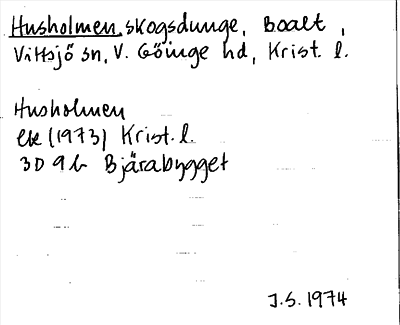 Husholmen, skogsdunge, Boalt,
Vittsjö sn, V. Göinge hd, Krist. l.
Husholmen
ek (1973) Krist. l.
3D 9b Bjärabygget
J.S. 1974